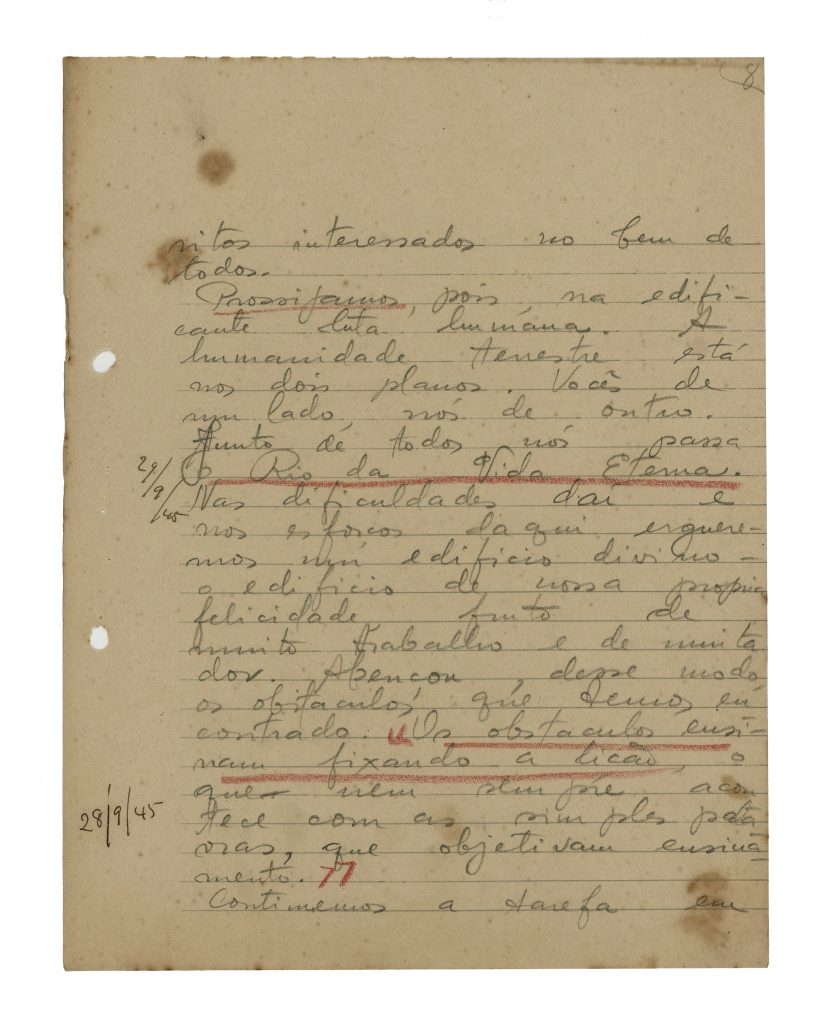 8
ritos interessados no bem de
todos.
Prossigamos, pois, na edifi-
cante luta humana. A
humanidade terrestre está
nos dois planos. Vocês de
um lado, nós de outro.
Junto de todos nós passa
29/9/45
O Rio da Vida Eterna.
Nas dificuldades daí e
nos esforços daqui erguere-
mos um edificio divino -
o edificio de nossa propria
felicidade, fruto de
muito trabalho e de muita
dor. Abençou, desse modo,
os obstaculos que temos en
contrado. "Os obstaculos ensi-
nam fixando a lição, o
que nem sempre acon
28/9/45
tece com as simples pala
vras, que objetivam ensina
mento."
Continuemos a tarefa em